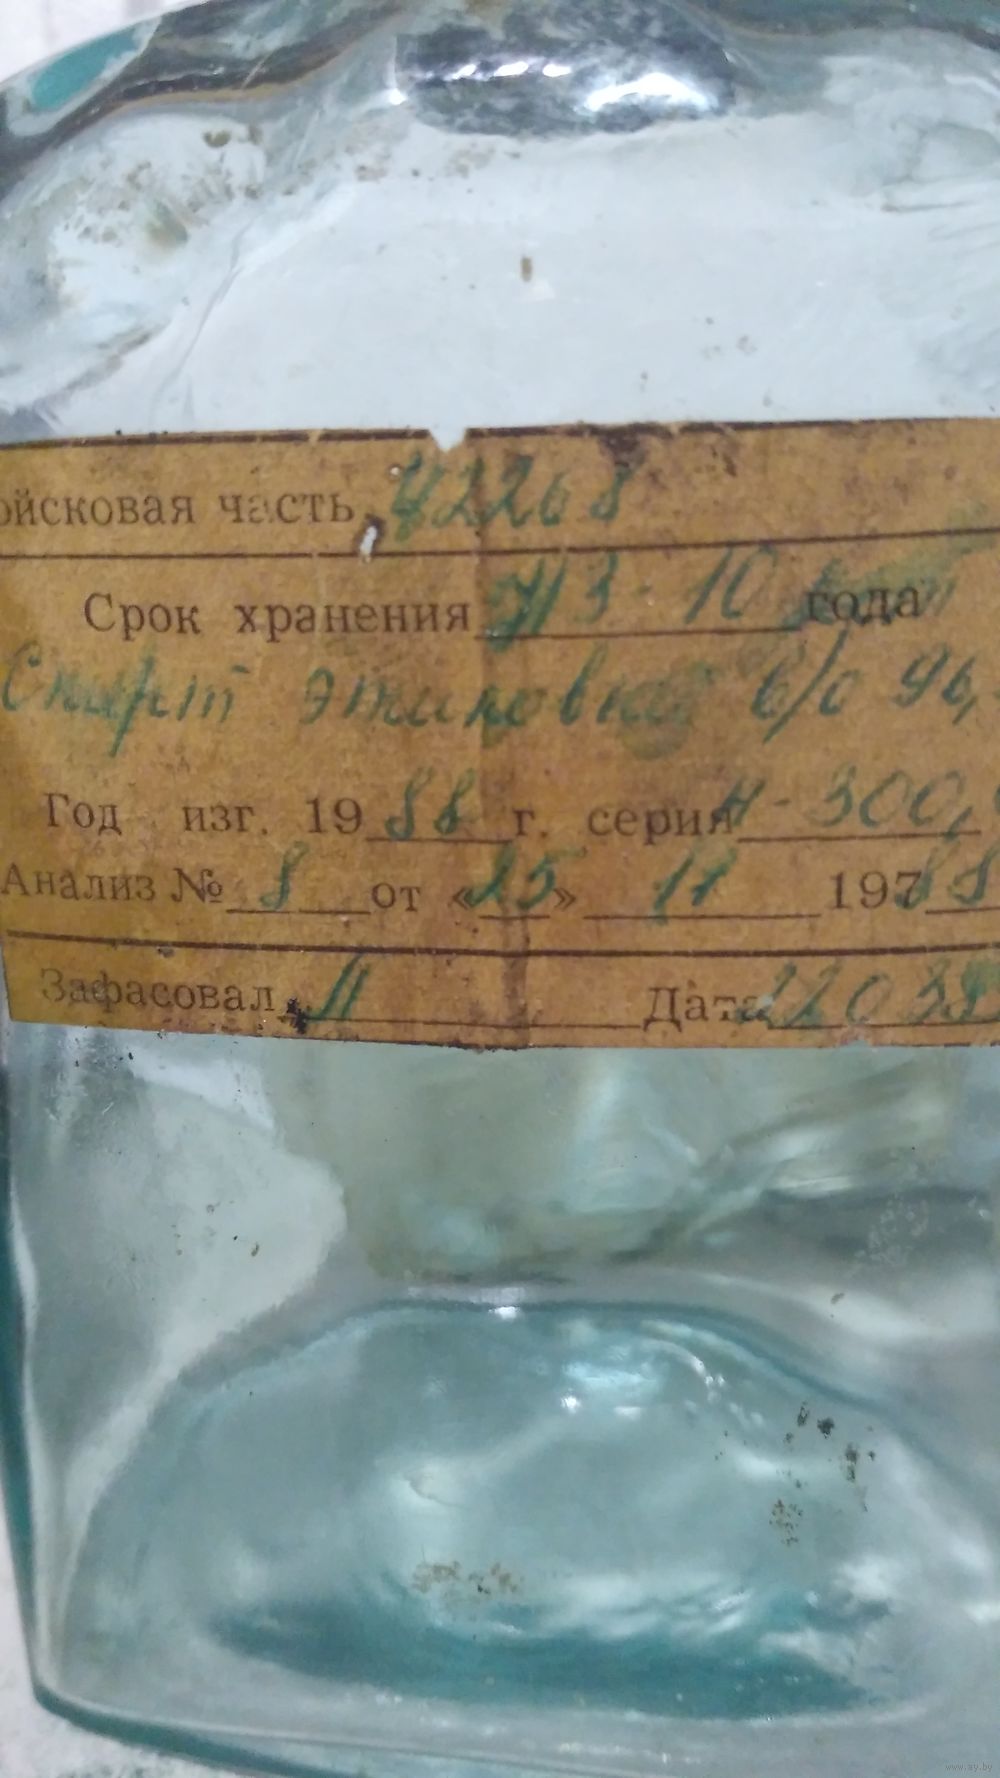 ойсковая часть 42268
Срок хранения 10 года
Спирт этиловый в/о 96,
Год изг. 1988 г. серия 300,
Анализ № 8 от «25» 11 197
Зафасовал Дата
www.ay.by